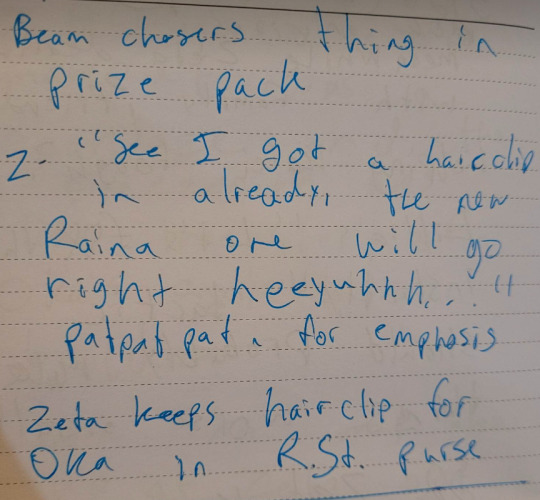 Beam chasers thing in
prize pack
Z- "See I got a hairclip
in already, the new
Raina one will go
right heeyuhhh..."
patpatpat. for emphasis
Zeta keeps hairclip for
Oka in R.St. purse